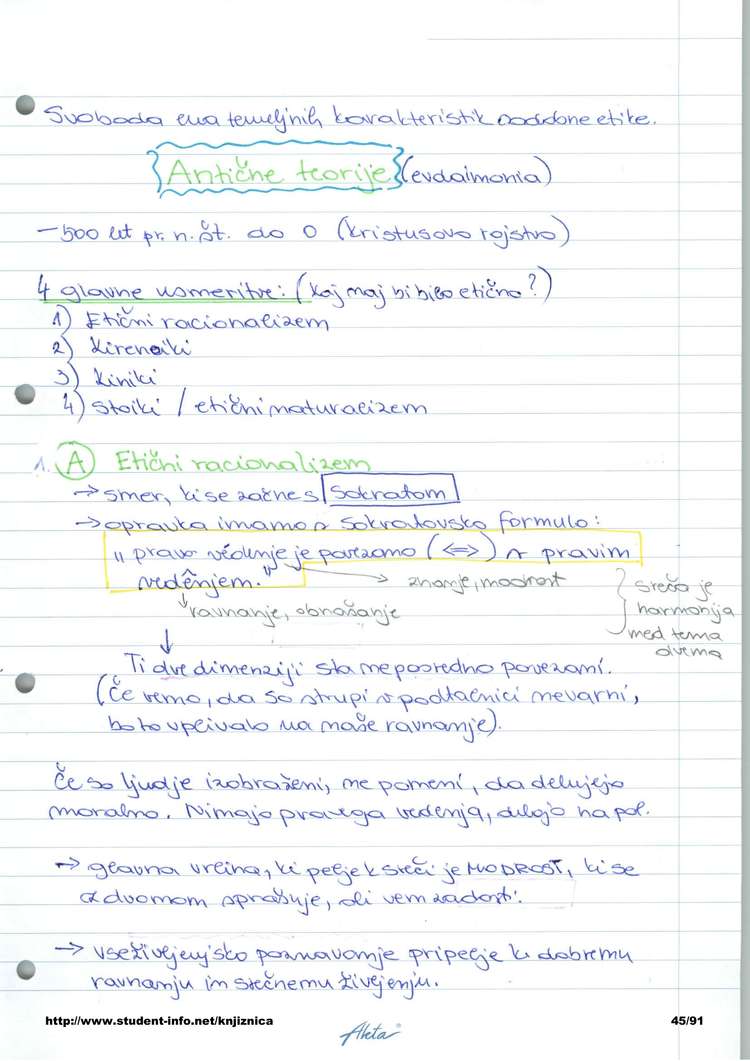 Svoboda ena temeljnih karakteristik sodobne etike.
Antične teorije (evdaimonia)
- 500 let pr. n. št. do 0 (Kristusovo rojstvo)
4 glavne usmeritve: (kaj naj bi bilo etično?)
1) Etični racionalizem
2) Kirenaiki
3) Kiniki
4) Stoiki / etični naturalizem
1. A Etični racionalizem
→ smer, ki se začne s Sokratom
→ opravka imamo s Sokratovsko formulo:
"pravo védenje je povezano (⇔) s pravim
vedênjem."
→ znanje, modrost
ravnanje, obnašanje
sreča je
harmonija
med tema
dvema
Ti dve dimenziji sta neposredno povezani.
(Če vemo, da so strupi v podtalnici nevarni,
bo to vplivalo na naše ravnanje).
Če so ljudje izobraženi, ne pomeni, da delujejo
moralno. Nimajo pravega vedenja, delajo na pol.
→ glavna vrlina, ki pelje k sreči je MODROST, ki se
z dvomom sprašuje, ali vem zadosti.
→ vseživljenjsko poznavanje pripelje k dobremu
ravnanju in srečnemu življenju.
http://www.student-info.net/knjiznica
45/91
Akta